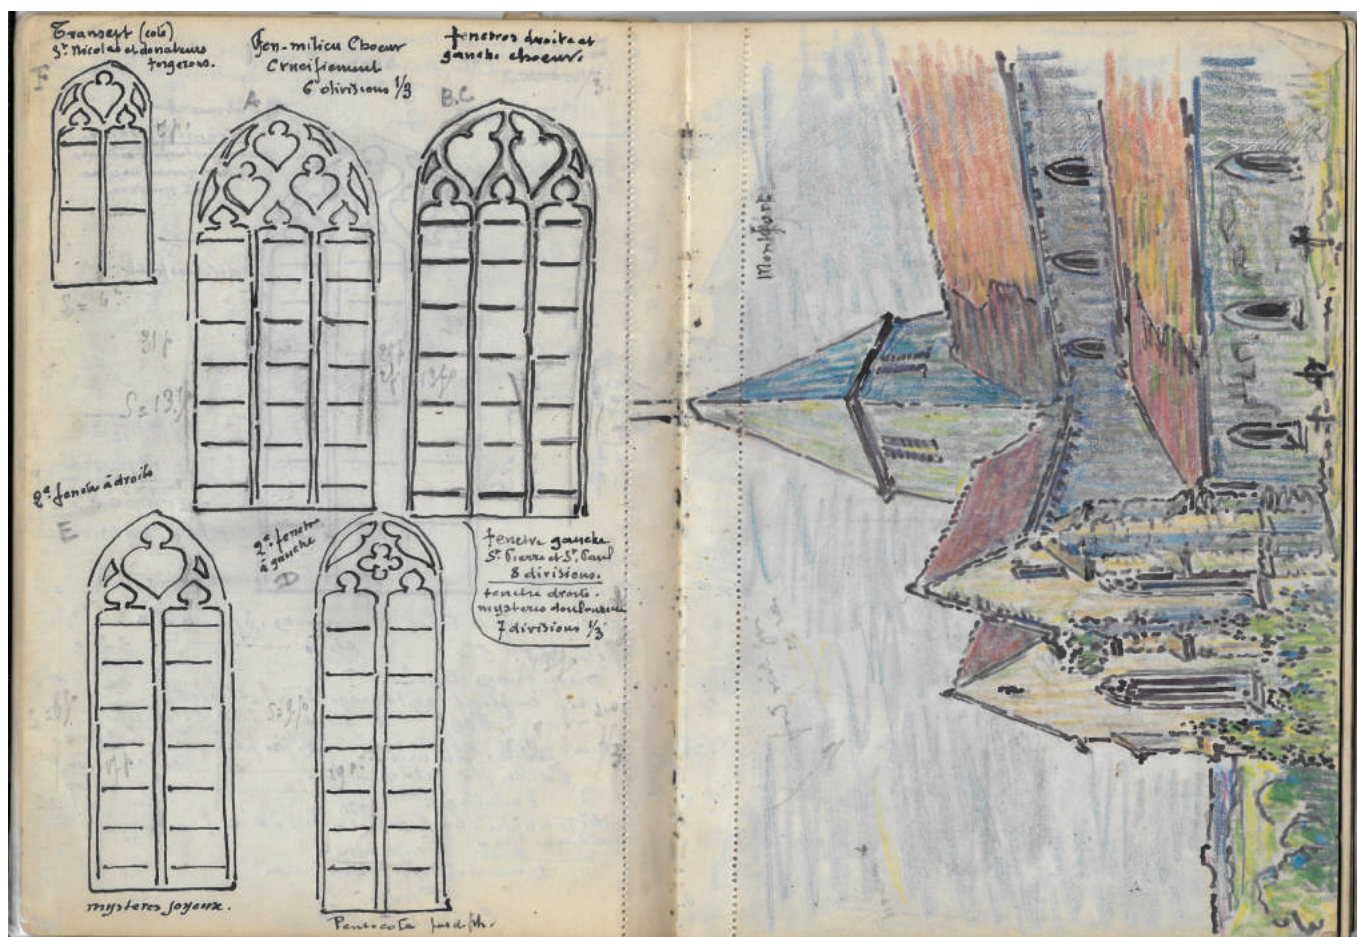 Transept (coté)
St Nicolas et donateurs
forgerons.
F
Fen-milieu Choeur
Crucifiement
6 divisions 1/3
A
fenetres droite et
gauche choeur.
B.C
2e fenetre à droite
E
mysteres joyeux.
2e fenetre
à gauche
D
Pentecote
fenetre gauche
St Pierre et St Paul
8 divisions.
fenetre droite.
mysteres douloureux
7 divisions 1/3
Montfort